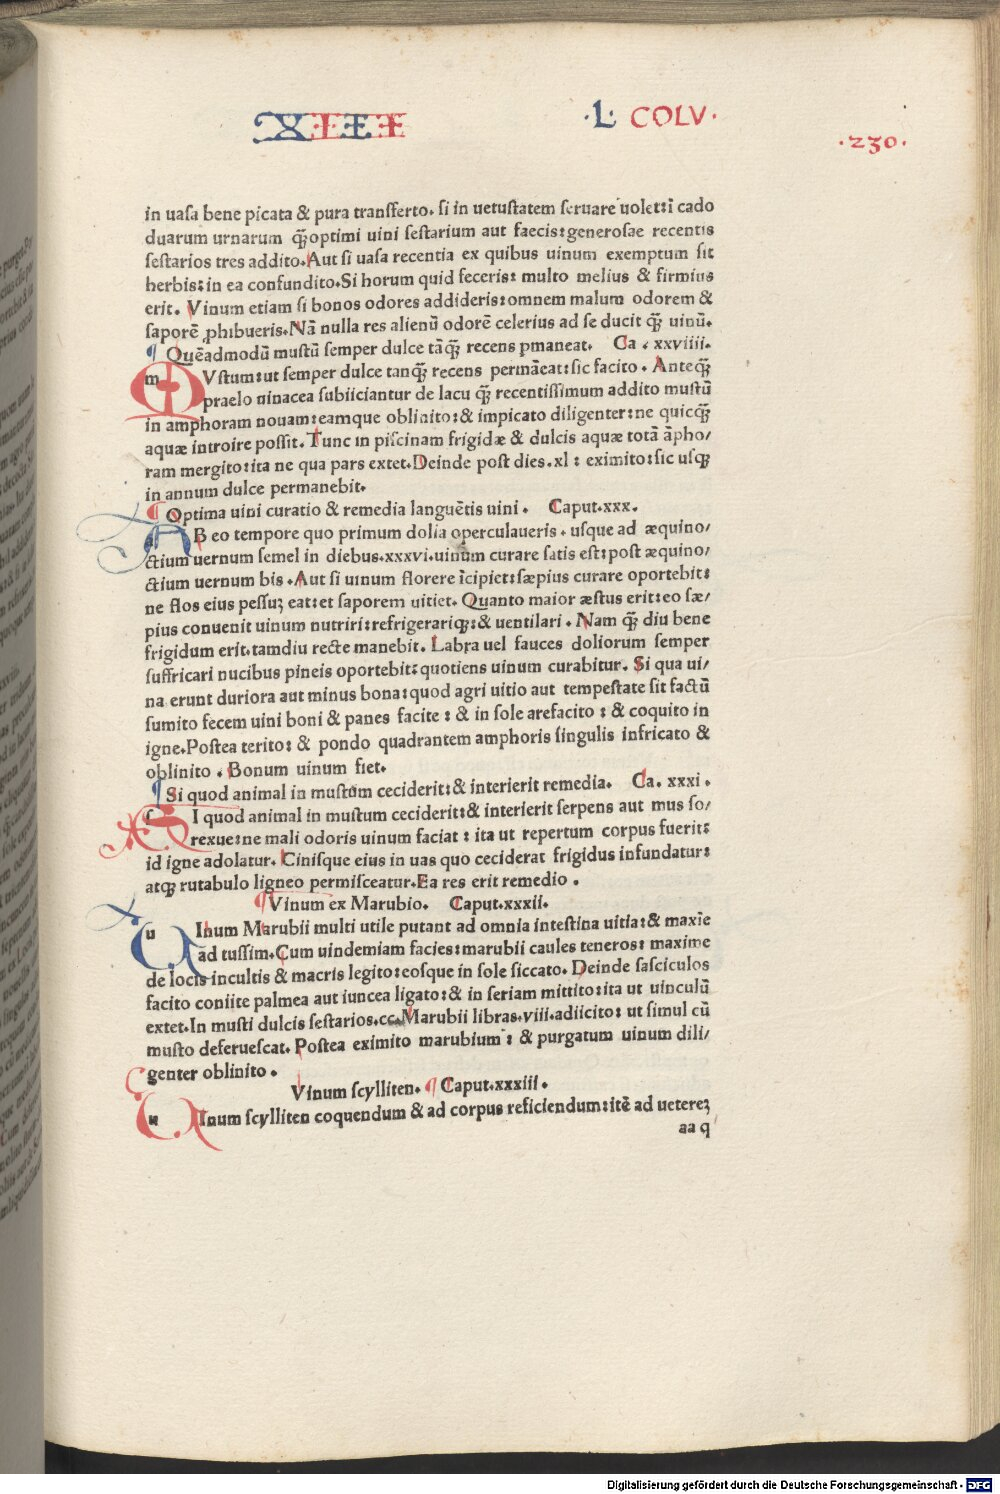 XIII
·L· COLV·
·230·
in uasa bene picata & pura transferto. si in uetustatem seruare uolet:ī cado
duarum urnarum q̄ȝ optimi uini sestarium aut faecis:generosae recentis
sestarios tres addito. Aut si uasa recentia ex quibus uinum exemptum sit
herbis:in ea confundito. Si horum quid feceris: multo melius & firmius
erit. Vinum etiam si bonos odores addideris:omnem malum odorem &
saporē ꝓhibueris. Nā nulla res alienū odorē celerius ad se ducit q̄ȝ uinū.
¶ Quēadmodū mustū semper dulce tāq̄ȝ recens pmaneat. Ca . xxviiii.
m Vstum:ut semper dulce tanq̄ȝ recens permāeat:sic facito . Anteq̄ȝ
praelo uinacea subiiciantur de lacu q̄ȝ recentissimum addito mustū
in amphoram nouam:eamque oblinito:& impicato diligenter:ne quicq̄ȝ
aquæ introire possit. Tunc in piscinam frigidæ & dulcis aquæ totā āpho/
ram mergito:ita ne qua pars extet. Deinde post dies.xl: eximito:sic usqȝ
in annum dulce permanebit.
¶ Optima uini curatio & remedia languētis uini . Caput.xxx.
a B eo tempore quo primum dolia operculaueris . usque ad æquino/
ctium uernum semel in diebus.xxxvi.uinum curare satis est:post æquino/
ctium uernum bis . Aut si uinum florere īcipiet:sæpius curare oportebit:
ne flos eius pessuȝ eat:et saporem uitiet. Quanto maior æstus erit:eo sæ/
pius conuenit uinum nutriri:refrigerariqȝ:& uentilari . Nam q̄ȝ diu bene
frigidum erit.tamdiu recte manebit. Labra uel fauces doliorum semper
suffricari nucibus pineis oportebit:quotiens uinum curabitur. Si qua ui/
na erunt duriora aut minus bona:quod agri uitio aut tempestate sit factū
sumito fecem uini boni & panes facite : & in sole arefacito : & coquito in
igne. Postea terito: & pondo quadrantem amphoris singulis infricato &
oblinito . Bonum uinum fiet.
¶ Si quod animal in mustum ceciderit:& interierit remedia. Ca. xxxi .
s I quod animal in mustum ceciderit:& interierit serpens aut mus so/
rexue:ne mali odoris uinum faciat : ita ut repertum corpus fuerit:
id igne adolatur. Cinisque eius in uas quo ceciderat frigidus infundatur:
atqȝ rutabulo ligneo permisceatur. Ea res erit remedio .
¶ Vinum ex Marubio. Caput.xxxii.
u Inum Marubii multi utile putant ad omnia intestina uitia:& maxīe
ad tussim. Cum uindemiam facies:marubii caules teneros: maxime
de locis incultis & macris legito:eosque in sole siccato. Deinde fasciculos
facito coniite palmea aut iuncea ligato:& in seriam mittito:ita ut uinculū
extet. In musti dulcis sestarios.cc. Marubii libras.viii.adiicito: ut simul cū
musto deferuescat. Postea eximito marubium : & purgatum uinum dili/
genter oblinito .
Vinum scylliten. ¶ Caput.xxxiii.
u Inum scylliten coquendum & ad corpus reficiendum:itē ad uetereȝ
aa q
Digitalisierung gefördert durch die Deutsche Forschungsgemeinschaft - DFG